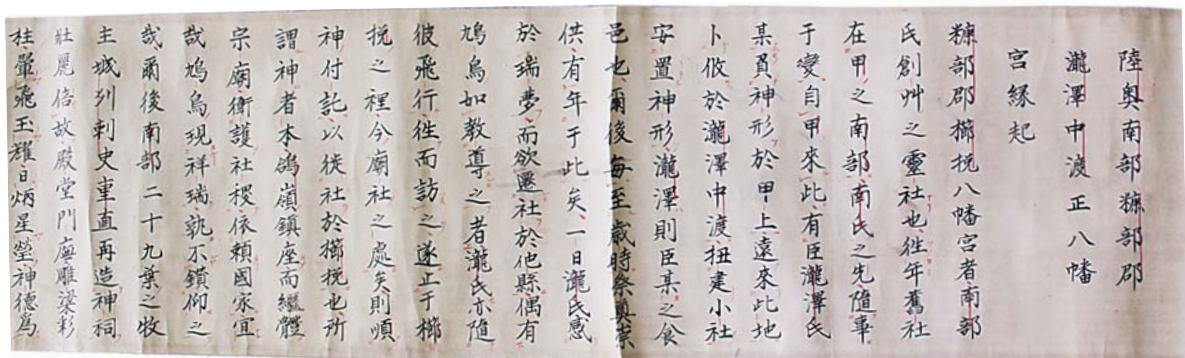 陸奥南部糠部郡
瀧澤中渡正八幡
宮縁起
糠部郡櫛挽八幡宮者南部
氏創艸之霊社也徃年舊社
在甲之南部南氏之先随事
于變自甲來此有臣瀧澤氏
某員神形於甲上遠來此地
卜攸於瀧澤中渡扭建小社
安置神形瀧澤則臣某之食
邑也爾後每至歳時祭奠崇
供有年于此矣一日瀧氏感
於瑞夢而欲遷社於他縣偶有
鳩鳥如教導之者瀧氏亦随
彼飛行徃而訪之遂正于櫛
挽之裡今廟社之處矣則順
神付託以徙社於櫛挽也所
謂神者本鴿嶺鎮座而繼體
宗廟衛護社稷依頼國家宜
哉鳩鳥現祥瑞孰不鑚仰之
哉爾後南部二十九葉之牧
主城列刺史重直再造神祠
壯麗倍故殿堂門廡雕梁彩
柱翬飛玉耀日炳星瑩神德為